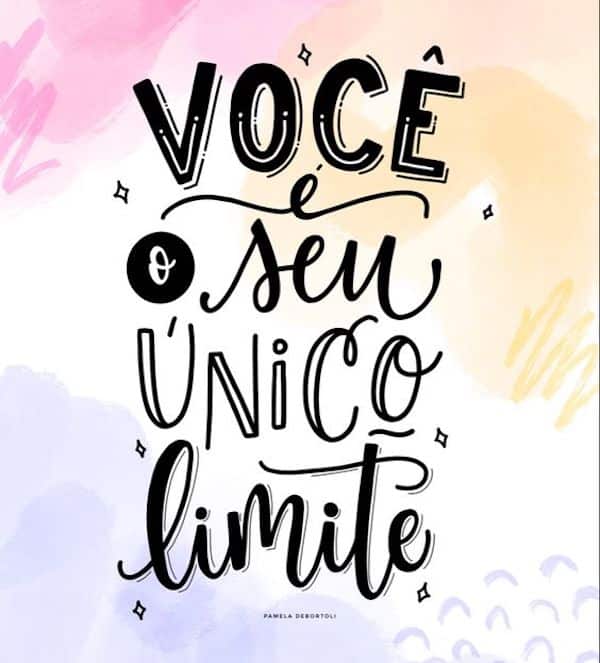 VOCÊ
é
o seu
ÚNiCO
limite
PAMELA DEBORTOLI